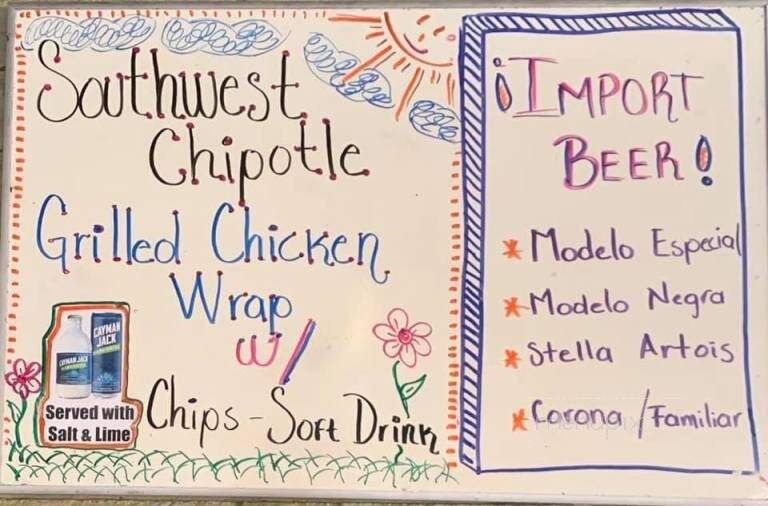 Southwest
Chipotle
Grilled Chicken
Wrap
w/
Chips - Soft Drink
CAYMAN JACK
CAYMAN
JACK
Served with
Salt & Lime
¡IMPORT
BEER!
* Modelo Especial
* Modelo Negra
* Stella Artois
* Corona / Familiar